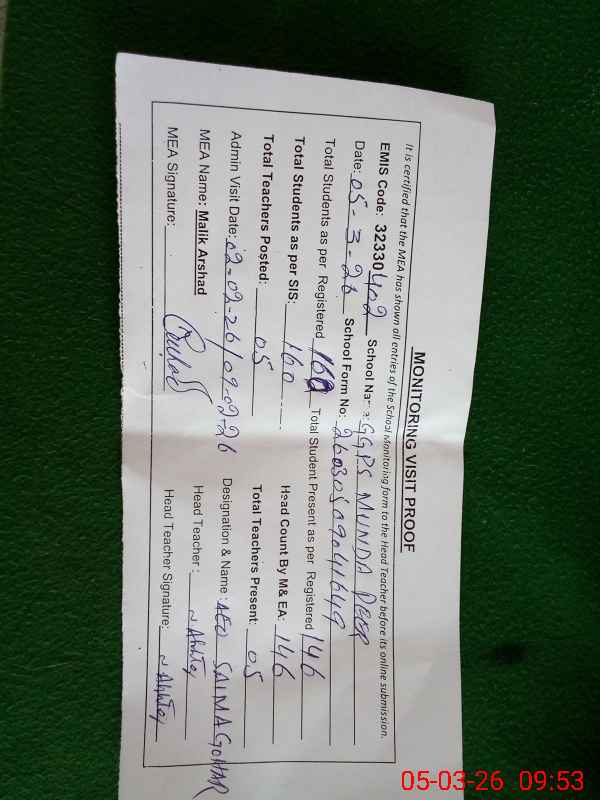 MONITORING VISIT PROOF
It is certified that the MEA has shown all entries of the School Monitoring form to the Head Teacher before its online submission.
EMIS Code: 32330402 School Name: GGPS MUNDA DEOR
Date: 05-3-26 School Form No:
Total Students as per Registered 160 Total Student Present as per Registered 146
Total Students as per SIS: 160 Head Count By M& EA: 146
Total Teachers Posted: 05 Total Teachers Present: 05
Admin Visit Date: 02-02-26/09-02-26 Designation & Name: AEO SAIMA GOHAR
MEA Name: Malik Arshad Head Teacher:
MEA Signature: Head Teacher Signature:
05-03-26 09:53